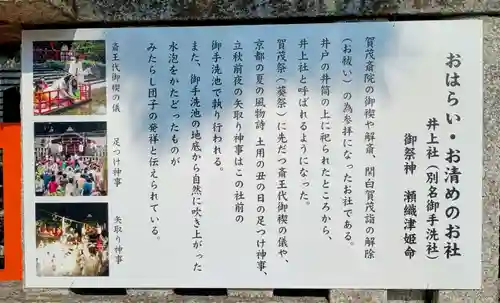 おはらい・お清めのお社
井上社(別名御手洗社)
御祭神　瀬織津姫命
賀茂斎院の御禊や解斎、関白賀茂詣の解除
(お祓い)の為参拝になったお社である。
井戸の井筒の上に祀られたところから、
井上社と呼ばれるようになった。
賀茂祭(葵祭)に先だつ斎王代御禊の儀や、
京都の夏の風物詩 土用の丑の日の足つけ神事、
立秋前夜の矢取り神事はこの社前の
御手洗池で執り行われる。
また、御手洗池の地底から自然に吹き上がった
水泡をかたどったものが
みたらし団子の発祥と伝えられている。
斎王代御禊の儀
足つけ神事
矢取り神事